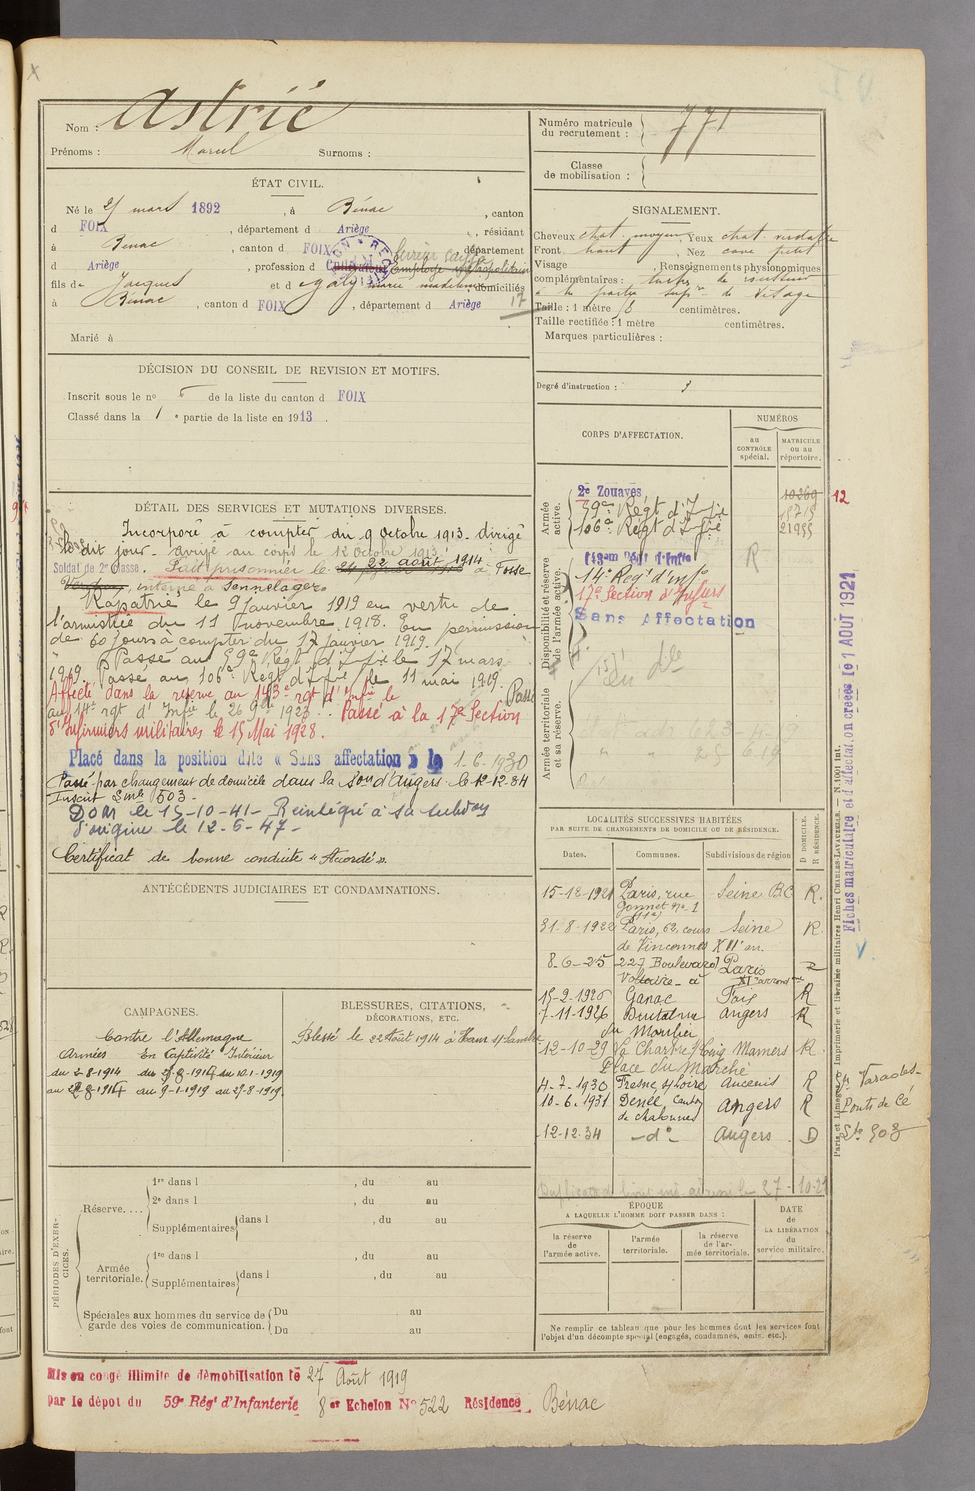 Nom : Astrié
Prénoms : Marcel Surnoms :
Numéro matricule du recrutement : 771
Classe de mobilisation :
ÉTAT CIVIL.
Né le mars 1892, à Bénac, canton
d FOIX, département d Ariège, résidant
à Bénac, canton d FOIX, département
d Ariège, profession d Employé métropolitain
fils de Jacques et d Galy marie madeleine, domiciliés
à Bénac, canton d FOIX, département d Ariège
17
Marié à
SIGNALEMENT.
Cheveux chat. moyen, Yeux chat. verdatre
Front haut, Nez cave petit
Visage, Renseignements physionomiques
complémentaires : taches de rousseur
à la partie supre de visage
Taille : 1 mètre centimètres.
Taille rectifiée : 1 mètre centimètres.
Marques particulières :
Degré d'instruction : 3
DÉCISION DU CONSEIL DE REVISION ET MOTIFS.
Inscrit sous le no 5 de la liste du canton d FOIX
Classé dans la 1e partie de la liste en 1913.
CORPS D'AFFECTATION.
NUMÉROS
au CONTRÔLE spécial.
MATRICULE ou au répertoire.
Armée active.
2e Zouaves 10269 12
59e Régt d'Ifie 15715
106e Régt d'Ifie 21955
Disponibilité et réserve de l'armée active.
143em Régt d'Inftie R
14e Regt d'Infie
17e Section d'Infirs
Sans Affectation
Armée territoriale et sa réserve.
DÉTAIL DES SERVICES ET MUTATIONS DIVERSES.
Incorporé à compter du 9 octobre 1913. dirigé
le dit jour. arrivé au corps le 12 octobre 1913.
Soldat de 2e classe. Fait prisonnier le 22 août 1914 à Fosse
interné à Sennelager.
Rapatrié le 9 Janvier 1919 en vertu de
l'armistice du 11 novembre 1918. En permission
de 60 jours à compter du 17 janvier 1919.
Passé au 59e Régt d'Ifie le 17 mars
1919. Passé au 106e Regt d'Ifie le 11 mai 1919.
Affecté dans la réserve au 143e rgt d'Infie le Passé
au 14e rgt d'Infie le 26 1923. Passé à la 17e Section
d'Infirmiers militaires le 15 Mai 1928.
Placé dans la position dite « Sans affectation » le 1-6-1930
Passé par changement de domicile dans la Son d'Angers le 12-12-34
Inscrit 503.
DOM le 15-10-41 - Réintégré à sa subdon
d'origine le 12-6-47-
Certificat de bonne conduite « Accordé ».
ANTÉCÉDENTS JUDICIAIRES ET CONDAMNATIONS.
LOCALITÉS SUCCESSIVES HABITÉES
PAR SUITE DE CHANGEMENTS DE DOMICILE OU DE RÉSIDENCE.
D DOMICILE. R RÉSIDENCE.
Dates. Communes. Subdivisions de région
15-12-1921 Paris, rue Gonnet no 1 (11e) Seine B.C R.
31.8-1922 Paris, 62, cours de Vincennes Seine XIIe arr. R.
8-6-25 227 Boulevard Voltaire - à Paris XIe arrondt R
15-2-1926 Ganac Foix R
7-11-1926 du Moulin Angers R
12-10-29 La Chartre s/Loir, Place du Marché Mamers R.
4-7-1930 Fresne s/Loire Ancenis R
10-6-1931 Denée, Canton de chalonnes Angers R Ponts de Cé
12-12-34 -do- Angers D
CAMPAGNES.
Contre l'Allemagne
Armées En Captivité Intérieur
du 2-8-1914 du 10.1-1919
au 9-1-1919 au 27-8-1919
BLESSURES, CITATIONS, DÉCORATIONS, ETC.
Blessé le 22 Août 1914 à Ham s/Sambre
PÉRIODES D'EXERCICES.
Réserve....
1re dans l, du au
2e dans l, du au
Supplémentaires dans l, du au
Armée territoriale.
1re dans l, du au
Supplémentaires dans l, du au
Spéciales aux hommes du service de garde des voies de communication.
Du au
Du au
ÉPOQUE
A LAQUELLE L'HOMME DOIT PASSER DANS :
la réserve de l'armée active.
l'armée territoriale.
la réserve de l'armée territoriale.
DATE de LA LIBÉRATION du service militaire.
Ne remplir ce tableau que pour les hommes dont les services font
l'objet d'un décompte spécial (engagés, condamnés, omis, etc.).
Mis en congé illimité de démobilisation le 27 Août 1919
par le dépôt du 59e Régt d'Infanterie 8er Echelon No 522 Résidence Bénac
Fiches matriculaire et d'affectation créées le 1 AOUT 1921
Paris et Limoges. Imprimerie et librairie militaires Henri CHARLES-LAVAUZELLE. — N. 1001 int.